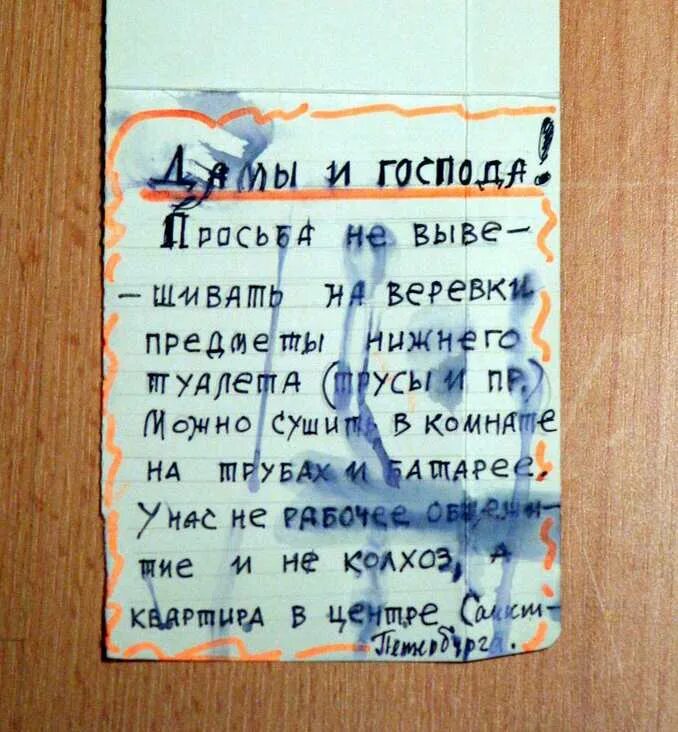 Дамы и господа!
Просьба не выве-
-шивать на веревки
предметы нижнего
туалета (трусы и пр.)
Можно сушить в комнате
на трубах и батарее.
У нас не рабочее общежи-
тие и не колхоз, а
квартира в центре Санкт-
Петербурга.